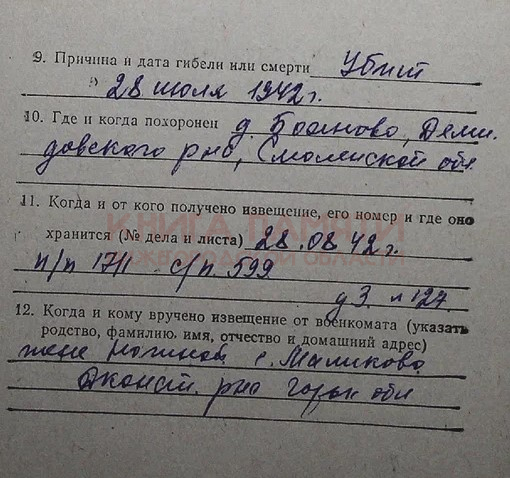 9. Причина и дата гибели или смерти Убит
28 июля 1942 г.
10. Где и когда похоронен д. Бояново, Деми-
довского р-на, Смоленской обл.
11. Когда и от кого получено извещение, его номер и где оно
хранится (№ дела и листа) 28.08.42 г.
п/п 1711 с/п. 599
д 3. л 127.
12. Когда и кому вручено извещение от военкомата (указать
родство, фамилию, имя, отчество и домашний адрес)
жене с. Маликово
р-на Горьк обл
КНИГА ПАМЯТИ
НИЖЕГОРОДСКОЙ ОБЛАСТИ